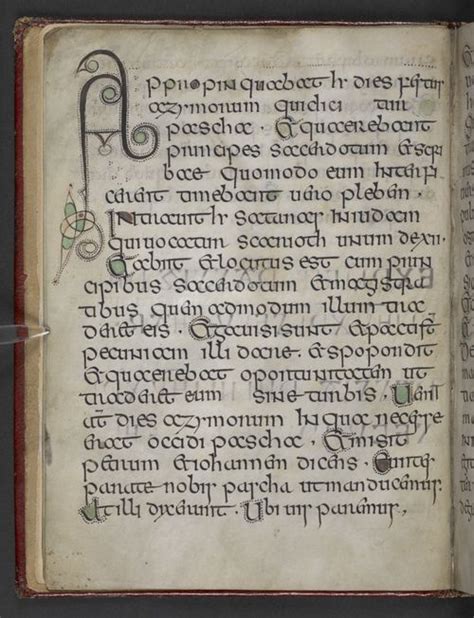 Appropinquabat hr dies festus
azymorum qui dici tur
pascha. Et quaerebant
principes sacerdotum et scri
bae quomodo eum interfi
cerent timebant uero plebem.
Intrauit hr satanas in iudam
qui uocatur scarioth unum de xii.
Et abiit et locutus est cum prin
cipibus sacerdotum et magistra
tibus quemadmodum illum trad
eret eis. Et gauisi sunt et pacti st
pecuniam illi dare. Et spopondit
et quaerebat oportunitatem ut
traderet eum sine turbis. Uenit
aut dies azymorum in qua necesse
erat occidi pascha. Et misit
petrum et iohannen dicens. Euntes
parate nobis pascha ut manducemus.
At illi dixerunt. Ubi uis paremus.